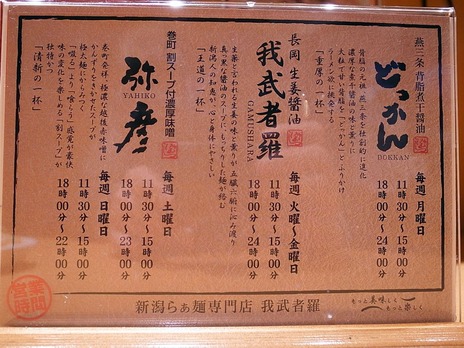 燕三条 背脂煮干醤油
どっかん
DOKKAN
背脂の元祖 燕三条を独創的に進化
濃厚な煮干醤油の味と薫りに
大粒で甘い背脂を「どっかん」とふりかけ
ラーメン欲に挑発する
「重厚の一杯」
毎週 月曜日
11時30分〜15時00分
18時00分〜24時00分
長岡 生姜醤油
我武者羅
GAMUSHARA
生薬と言われる生姜の味と薫りが五臓六腑に沁み渡り
真っ黒な醤油のスープにもっちりした麺が絡む
新潟人の知恵が、心と身体にやさしい
「王道の一杯」
毎週 火曜〜金曜日
11時30分〜15時00分
18時00分〜24時00分
巻町 割スープ付濃厚味噌
弥彦
YAHIKO
巻町発祥、極濃な越後赤味噌に
かんずりをきかせたスープが
極太麺にからみつく
「啜る」より「喰う」感覚が豪快
味の変化を楽しめる「割スープ」が
独特かつ
「清新の一杯」
毎週 土曜日
11時30分〜15時00分
18時00分〜23時00分
毎週 日曜日
11時30分〜15時30分
18時00分〜22時00分
営業時間
新潟らぁ麺専門店 我武者羅
もっと美味しく
もっと楽しく